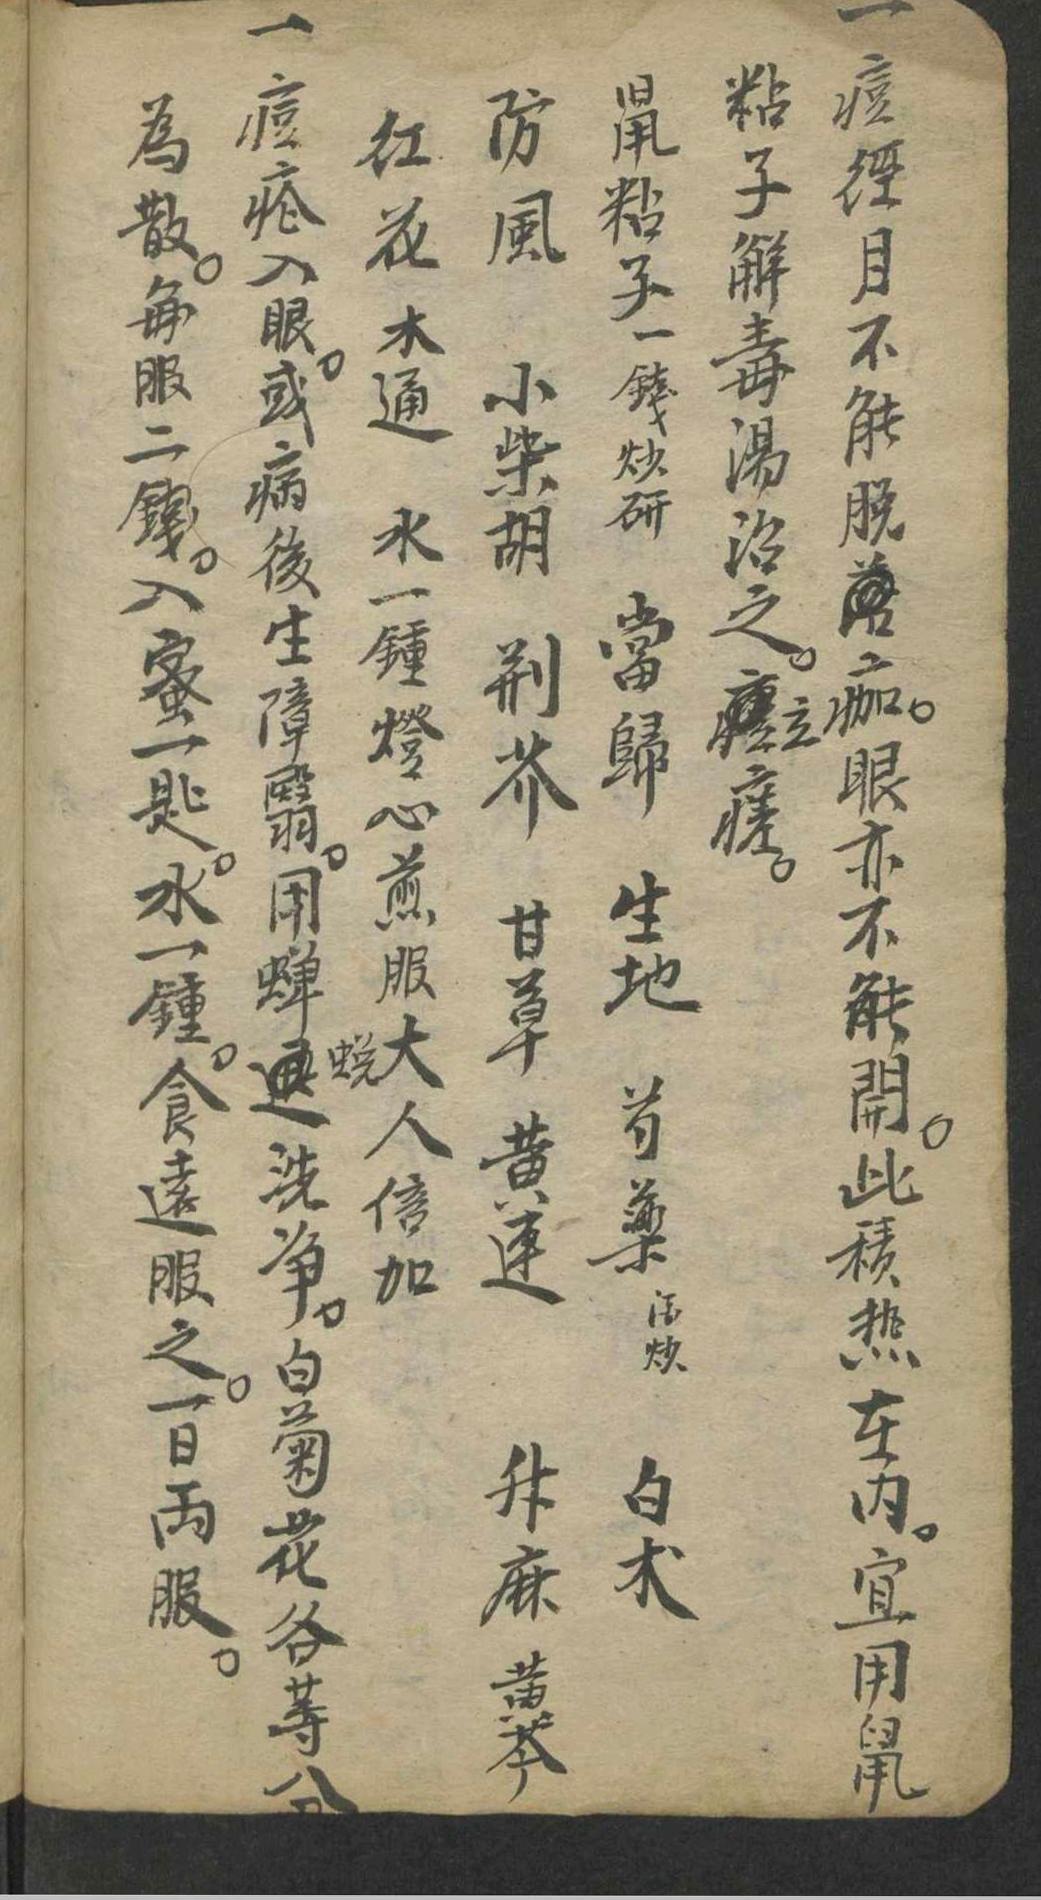 一痘經月不能脫痂。眼亦不能開。此積热在内。宜用鼠
粘子解毒湯治之。立瘥。
鼠粘子一錢炒研 當歸 生地 芍藥酒炒 白术
防風 小柴胡 荊芥 甘草 黄連 升麻 黄芩
红花 木通 水一鍾燈心煎服大人倍加
一痘瘡入眼。或病後生障翳。用蝉蜕洗净。白菊花各等分
為散。每服二錢。入蜜一匙。水一鍾。食遠服之。一日两服。